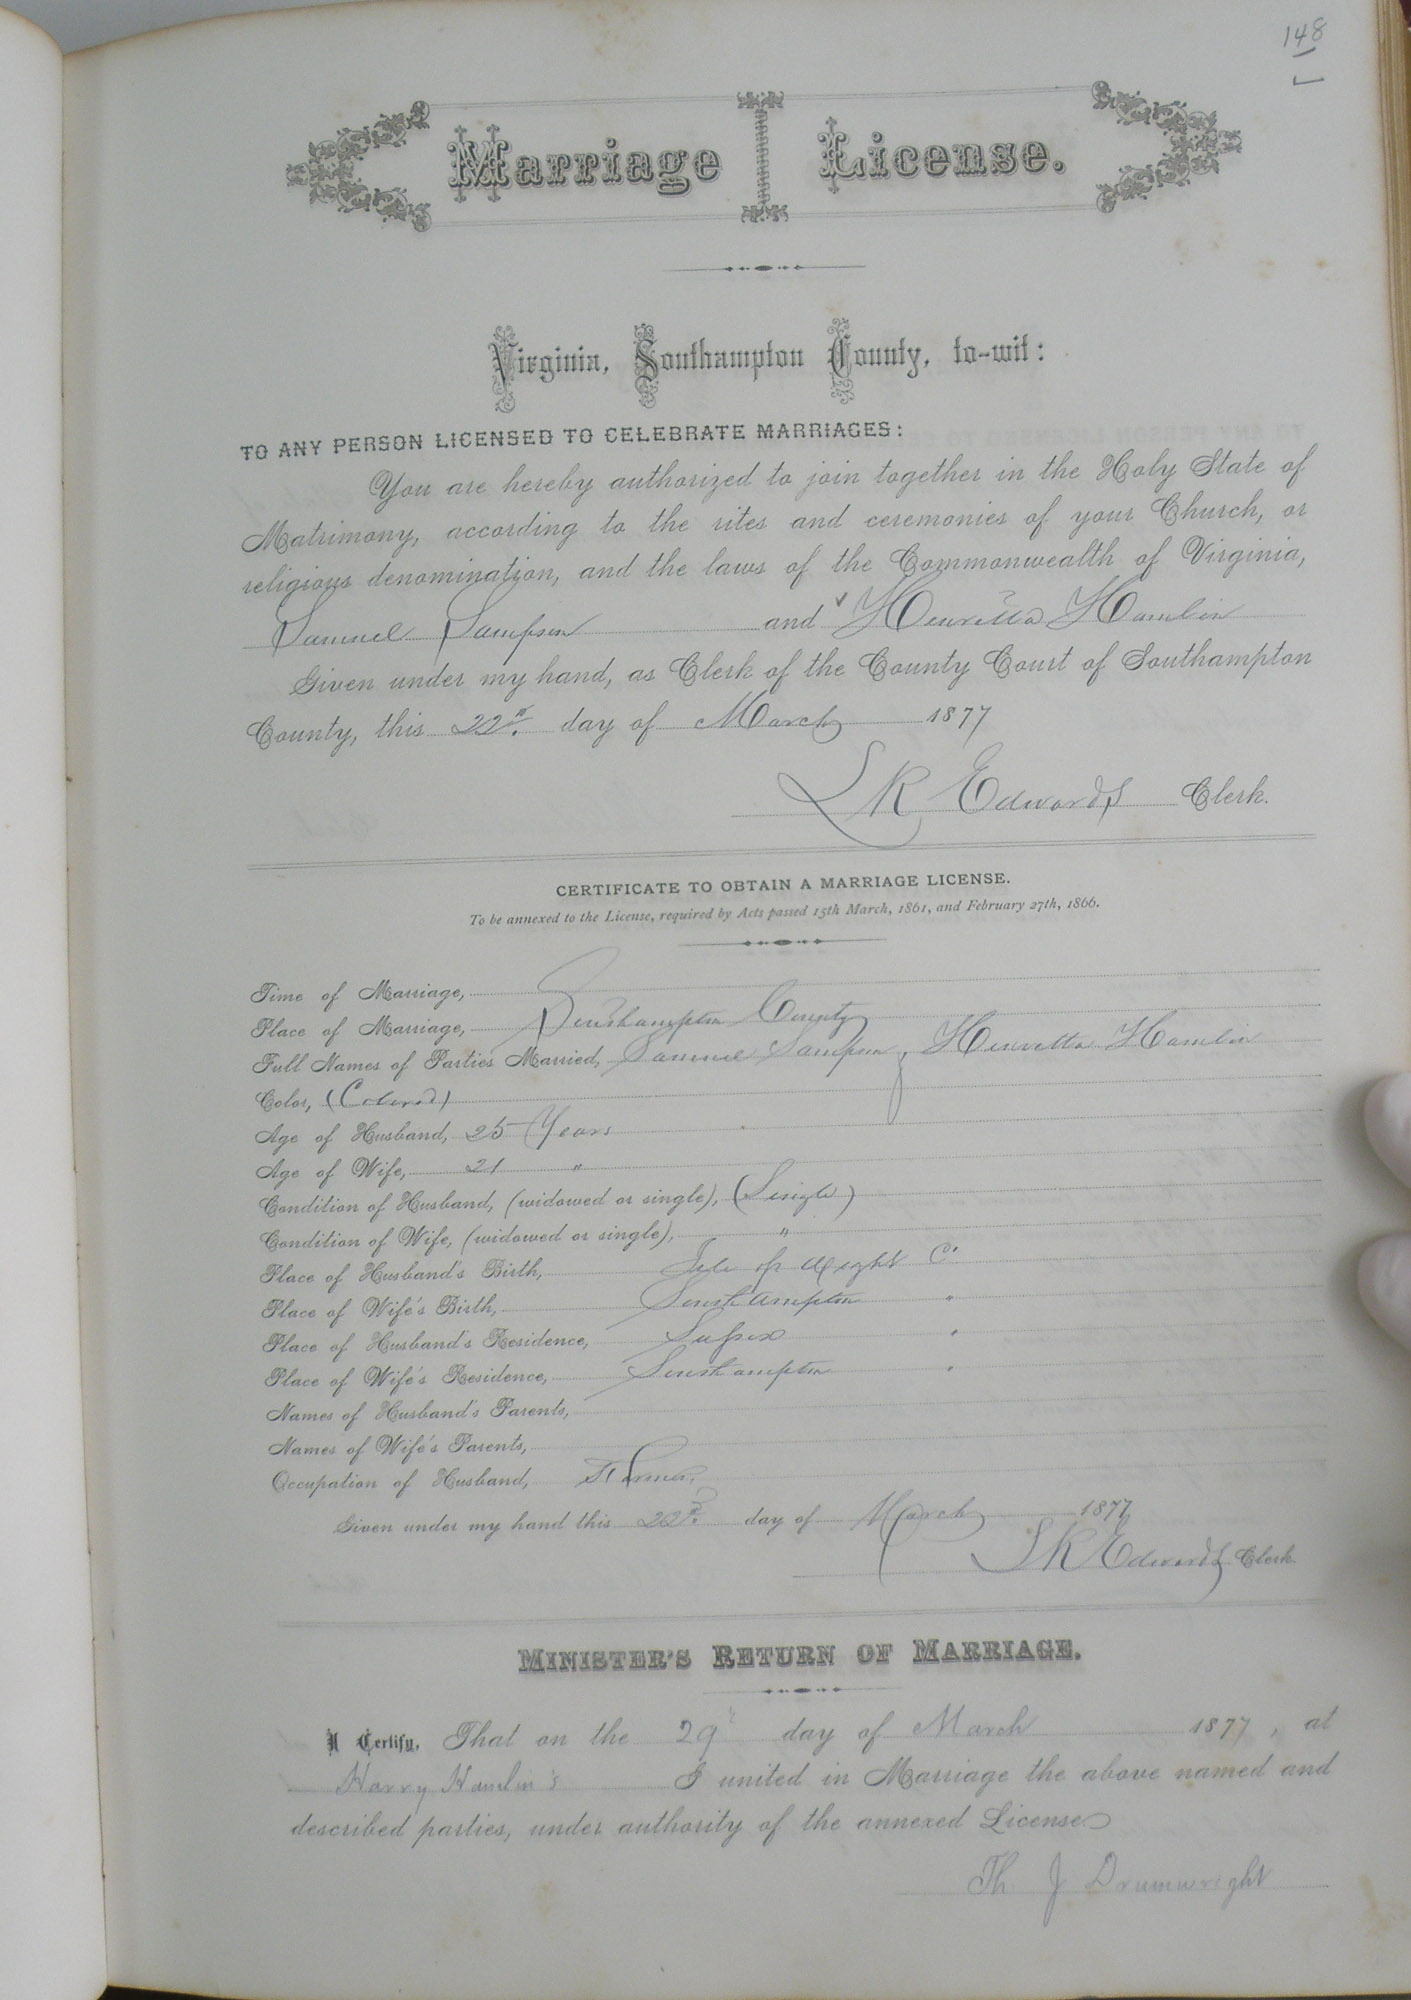 148
Marriage License.
Virginia, Southampton County, to-wit:
TO ANY PERSON LICENSED TO CELEBRATE MARRIAGES:
You are hereby authorized to join together in the Holy State of
Matrimony, according to the rites and ceremonies of your Church, or
religious denomination, and the laws of the Commonwealth of Virginia,
Samuel Sampson and Henretta Hamlin
Given under my hand, as Clerk of the County Court of Southampton
County, this 22nd day of March 1877
L R Edwards Clerk.
CERTIFICATE TO OBTAIN A MARRIAGE LICENSE.
To be annexed to the License, required by Acts passed 15th March, 1861, and February 27th, 1866.
Time of Marriage,
Place of Marriage, Southampton County
Full Names of Parties Married, Samuel Sampson, Henretta Hamlin
Color, (Colored)
Age of Husband, 25 Years
Age of Wife, 21 "
Condition of Husband, (widowed or single), (Single)
Condition of Wife, (widowed or single), "
Place of Husband's Birth, Isle of Wight Co.
Place of Wife's Birth, Southampton "
Place of Husband's Residence, Sussex "
Place of Wife's Residence, Southampton "
Names of Husband's Parents,
Names of Wife's Parents,
Occupation of Husband, Farmer,
Given under my hand this 22nd day of March 1877
L R Edwards Clerk
MINISTER'S RETURN OF MARRIAGE.
I Certify, That on the 29 day of March 1877, at
Harry Hamlin's I united in Marriage the above named and
described parties, under authority of the annexed License
Th J Drumwright